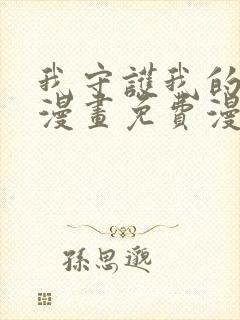 我守護我的
漫畫免費漫
孫思邈